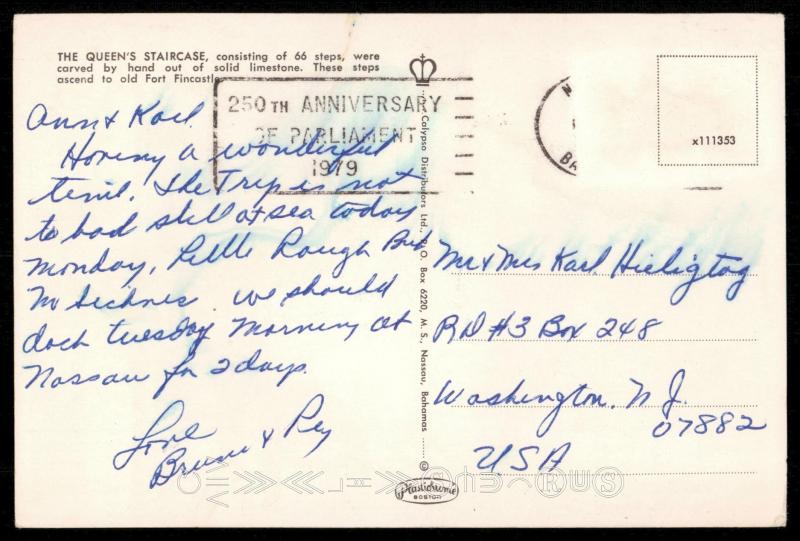 THE QUEEN'S STAIRCASE, consisting of 66 steps, were
carved by hand out of solid limestone. These steps
ascend to old Fort Fincastle.
250TH ANNIVERSARY
OF PARLIAMENT
1979
x111353
Ann & Karl.
Having a wonderful
time. The Trip is not
to bad still at sea today
Monday, Little Rough But
No Sicknes we should
dock tuesday Morning at
Nassau for 2 days.
Love
& Peg
Mr & Mrs Karl Hieligtag
RD #3 Box 248
Washington, N J.
07882
USA
© Calypso Distributors Ltd., P. O. Box 6220, M. S., Nassau, Bahamas
Plastichrome
BOSTON